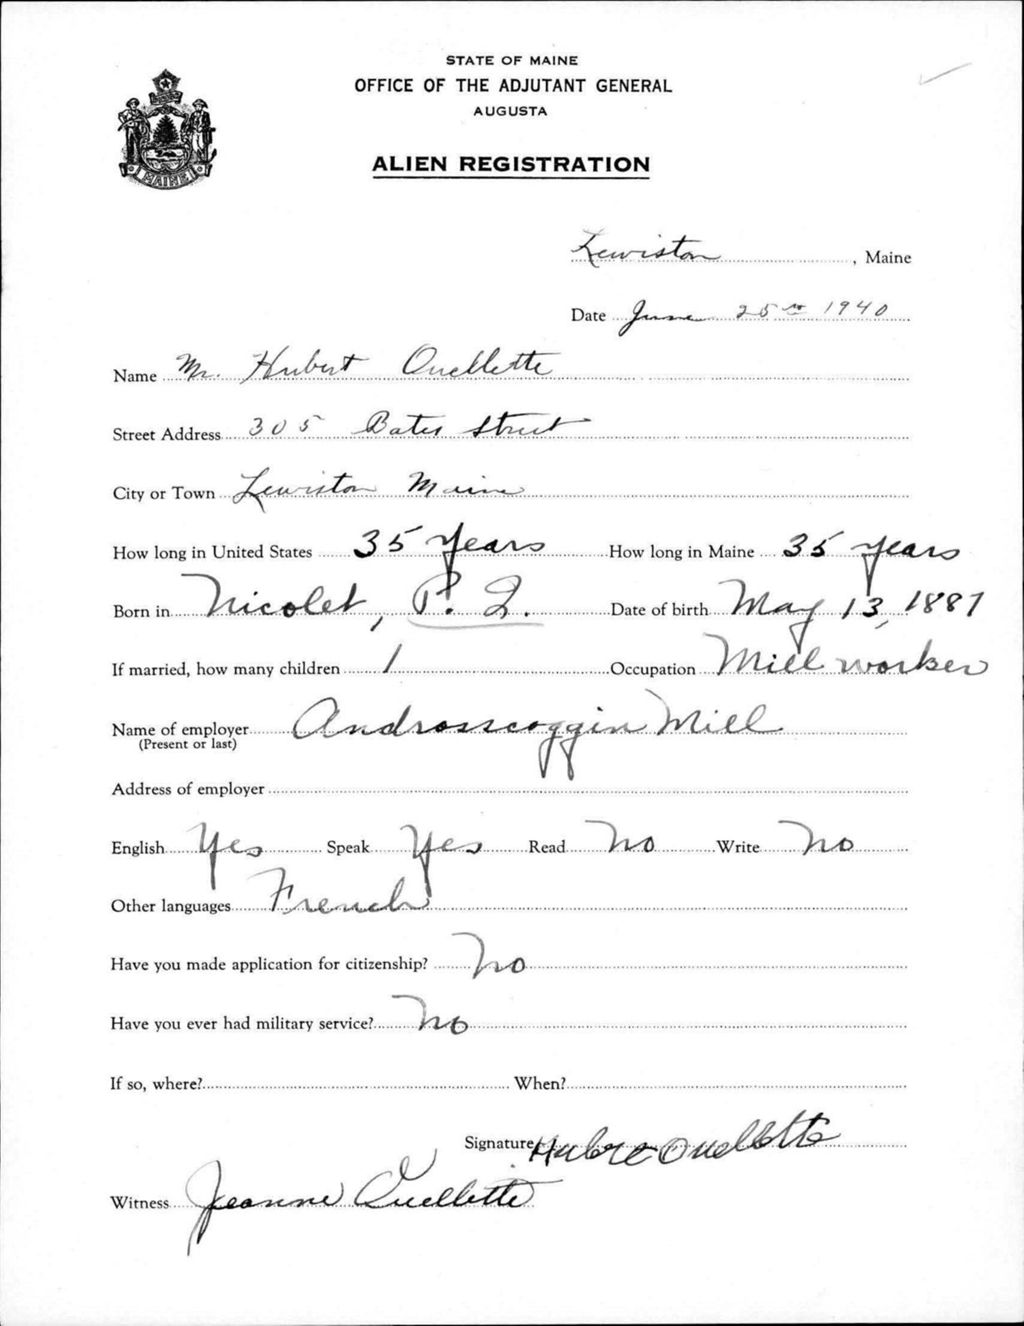 STATE OF MAINE
OFFICE OF THE ADJUTANT GENERAL
AUGUSTA
ALIEN REGISTRATION
MAINE
Lewiston, Maine
Date June 25th 1940
Name Mr. Hubert Ouellette
Street Address 305 Bates Street
City or Town Lewiston Maine
How long in United States 35 years How long in Maine 35 years
Born in Nicolet, P. Q. Date of birth May 13, 1887
If married, how many children 1 Occupation Mill worker
Name of employer Androsscoggin Mill
(Present or last)
Address of employer
English Yes Speak Yes Read No Write No
Other languages French
Have you made application for citizenship? No
Have you ever had military service? No
If so, where? When?
Signature Ouellette
Witness Jeanne Ouellette